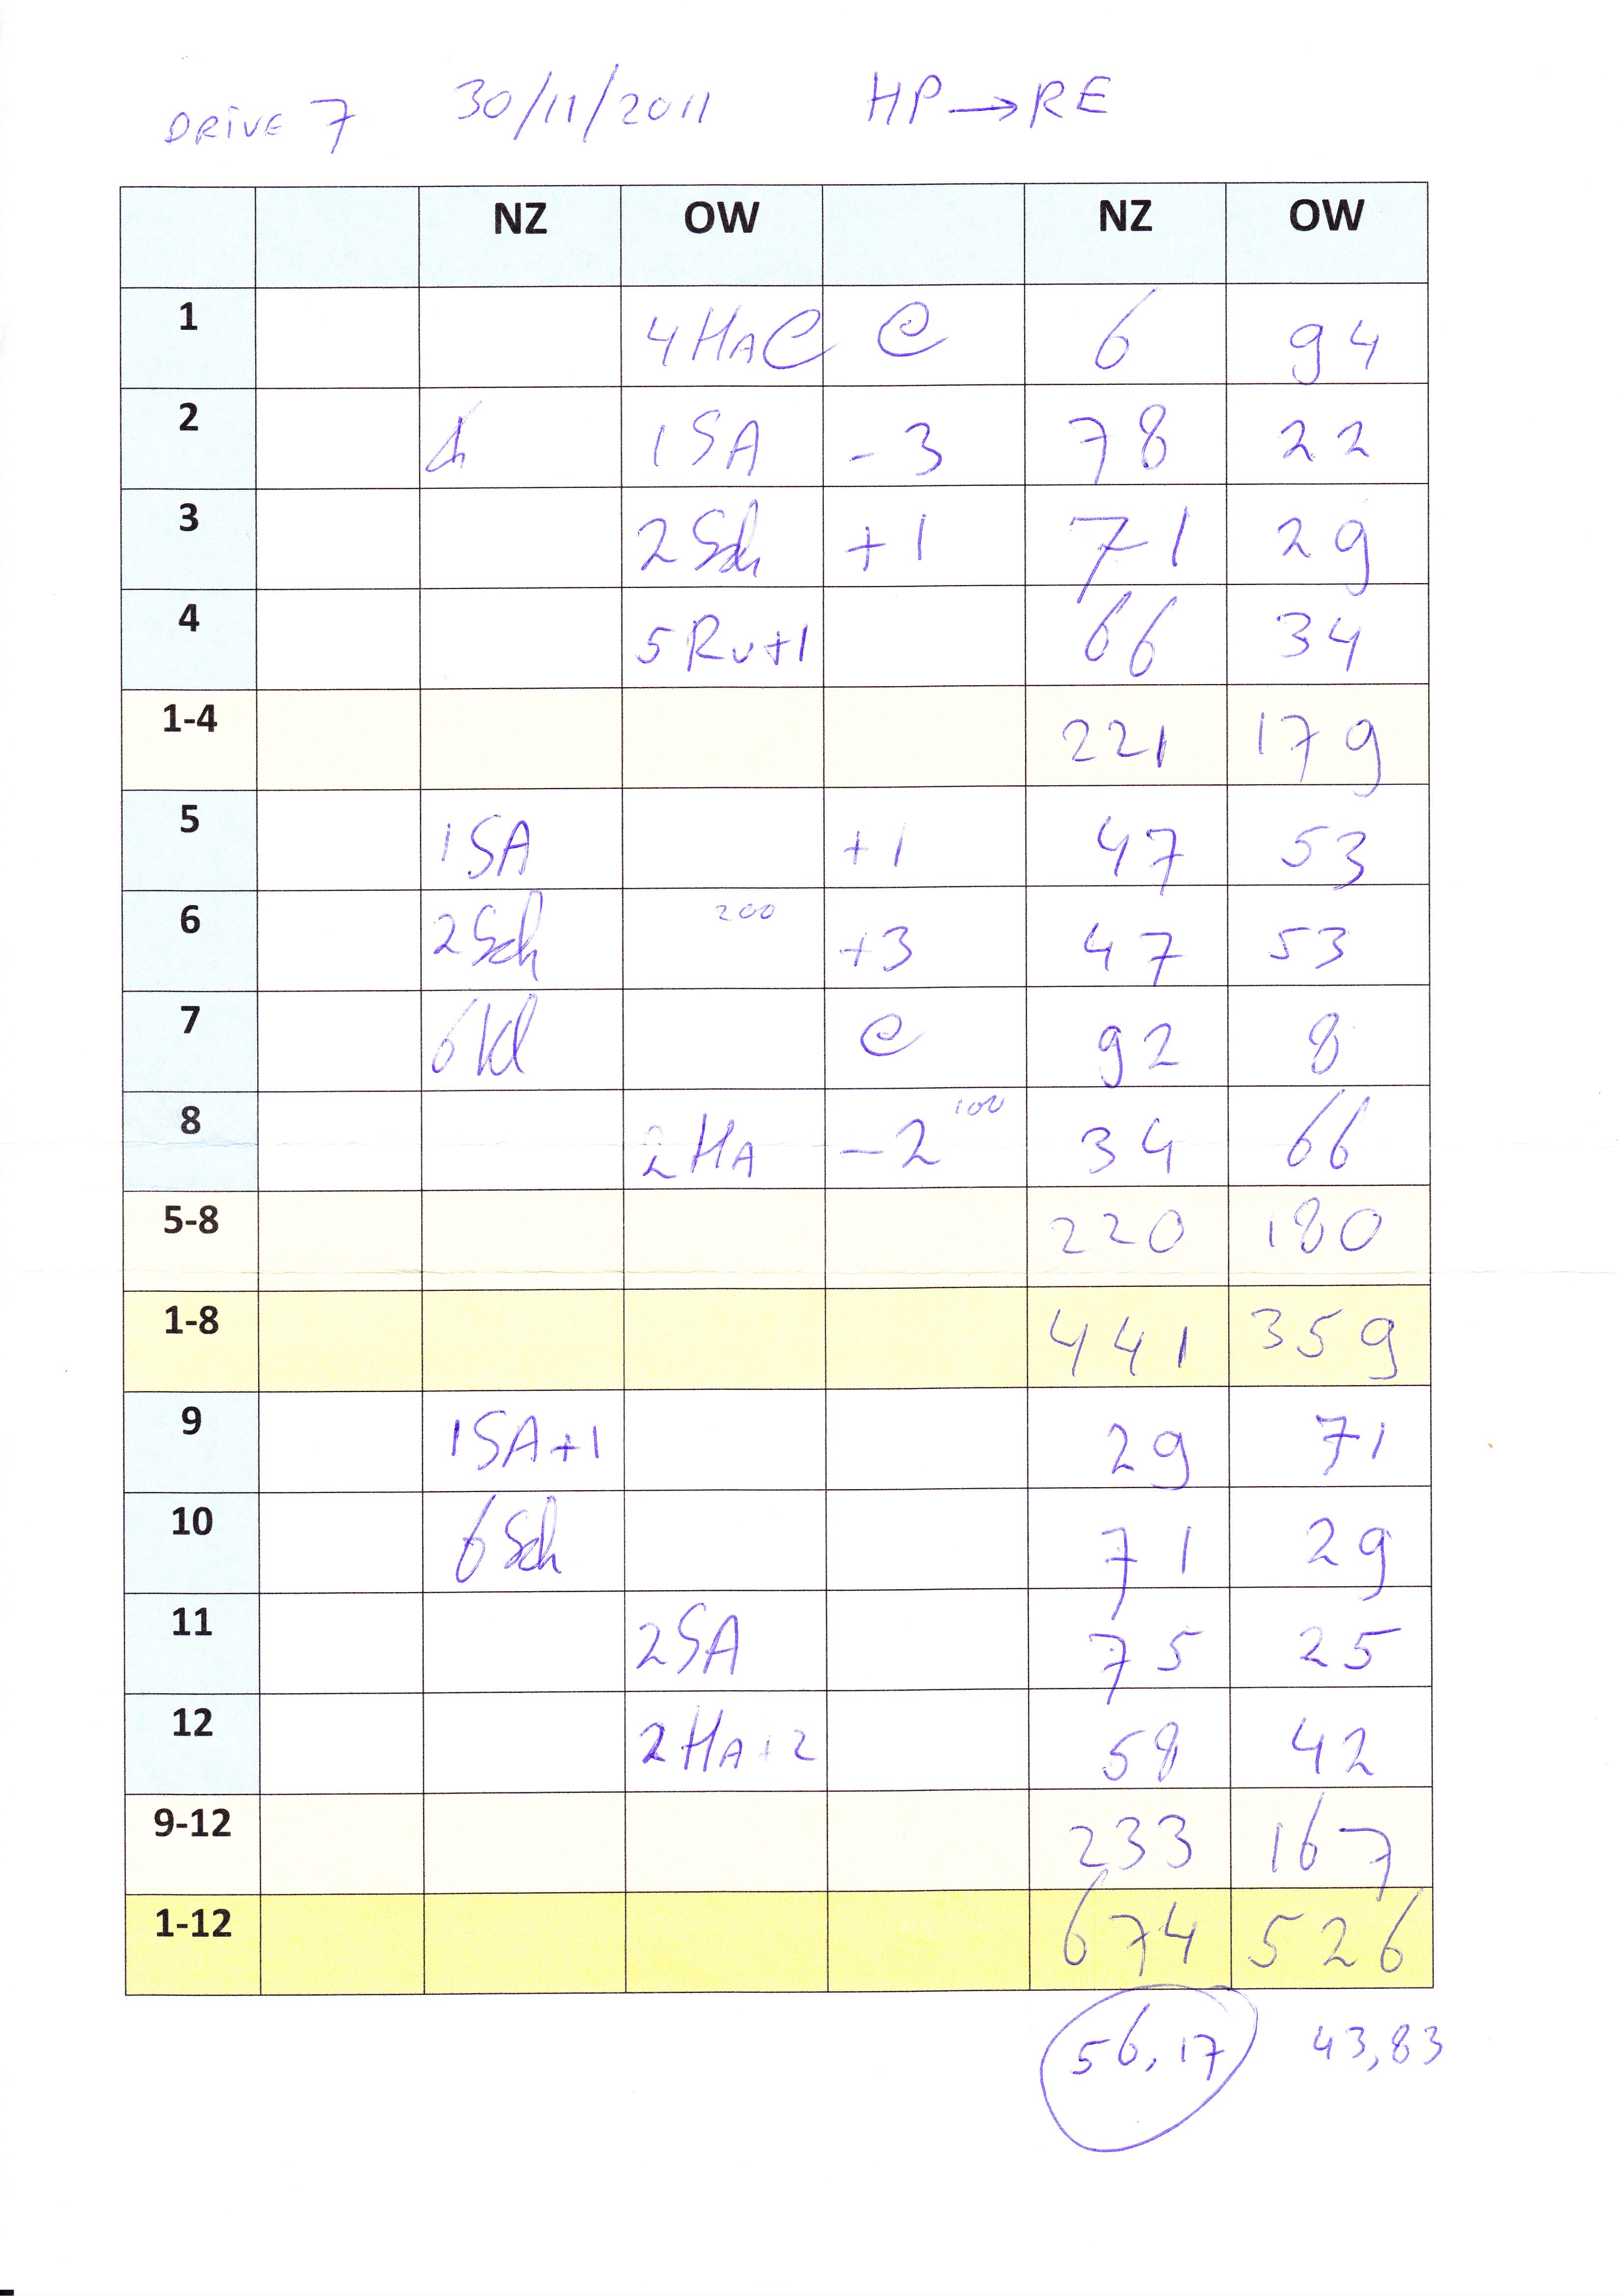 DRIVE 7 30/11/2011 HP → RE
NZ OW NZ OW
1 4 HA C C 6 94
2 1SA - 3 78 22
3 2Sch +1 71 29
4 5 RU+1 66 34
1-4 221 179
5 1SA +1 47 53
6 2Sch 200 +3 47 53
7 6Kl C 92 8
8 2 HA -2 100 34 66
5-8 220 180
1-8 441 359
9 1SA+1 29 71
10 6 Sch 71 29
11 2SA 75 25
12 2 HA+2 58 42
9-12 233 167
1-12 674 526
56,17 43,83